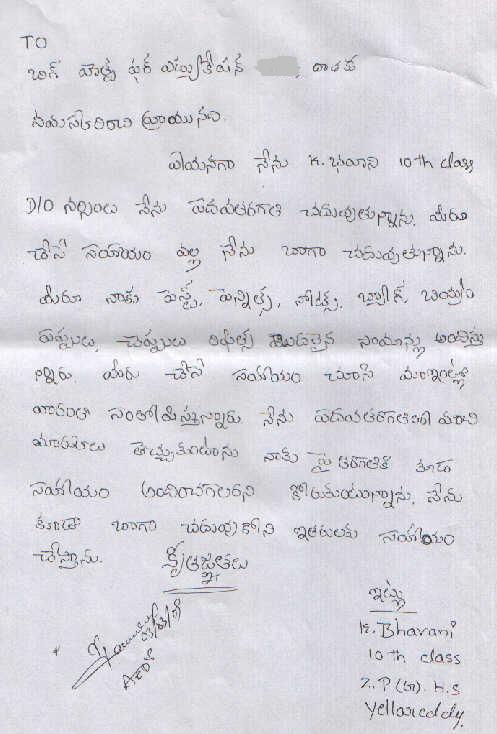 TO
బిగ్ హెల్ప్ ఫర్ ఎడ్యుకేషన్ , దాతకు
నమస్కరించి వ్రాయునది.
ఏమనగా నేను K. భవాని 10th class
D/O నర్సింలు నేను పదవతరగతి చదువుతున్నాను. మీరు
చేసే సహాయం వల్ల నేను బాగా చదువుతున్నాను.
మీరు నాకు పెన్స్, పెన్సిల్స్, నోట్స్, బ్యాగ్, బియ్యం
పప్పులు, చెప్పులు మొదలైన సాయాన్ని అందిస్తు
న్నారు. మీరు చేసే సహాయం చూసి మా ఇంట్లో
వారంతా సంతోషిస్తున్నారు. నేను పదవతరగతిలో మంచి
మార్కులు తెచ్చుకుంటాను నాకు పై తరగతికి కూడా
సహాయం అందించగలరని కోరుకుంటున్నాను. నేను
కూడా బాగా చదువుకోని ఇతరులకు సహాయం
చేస్తాను. కృతజ్ఞతలు
ఇట్లు
K. Bharani
10th class
Z.P H.S
Yellareddy.